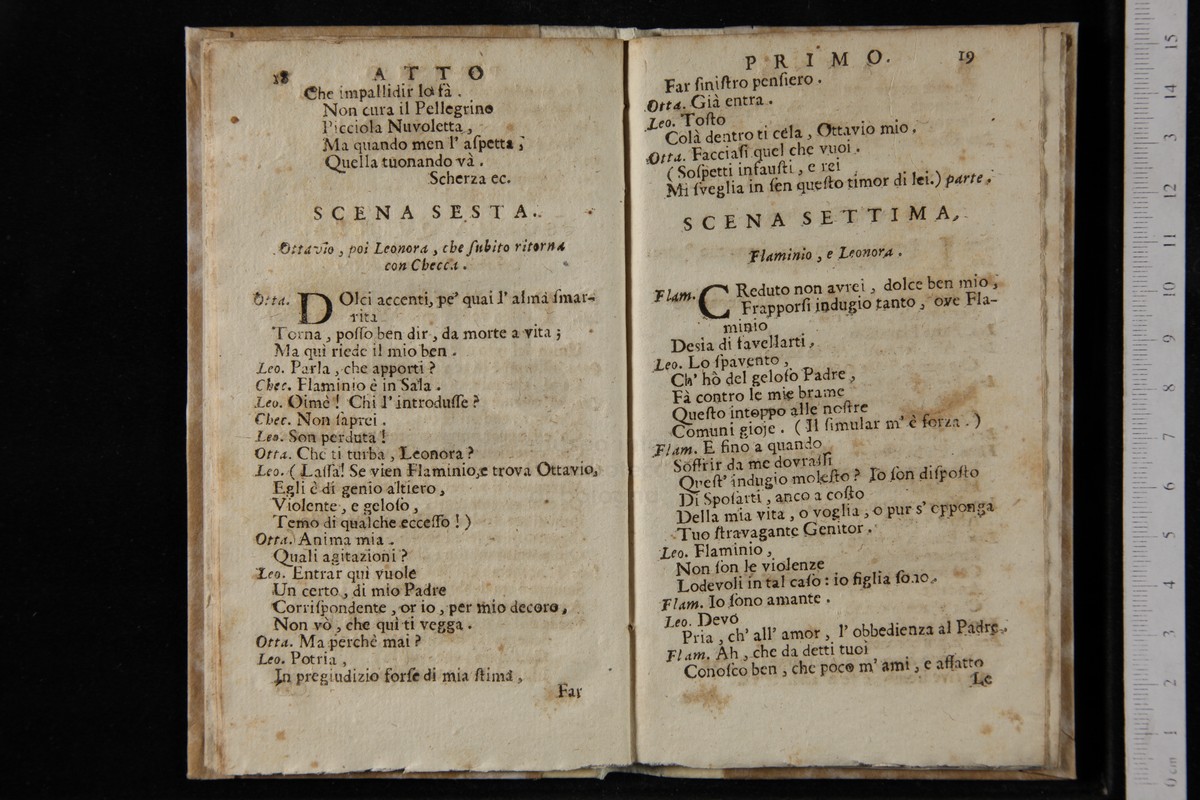 18 ATTO
Che impallidir lo fà .
Non cura il Pellegrino
Picciola Nuvoletta ,
Ma quando men l' aſpetta ,
Quella tuonando và .
Scherza ec.
SCENA SESTA.
Ottavio , poi Leonora , che ſubito ritorna
con Checca .
Otta. DOlci accenti, pe' quai l' alma ſmar-
rita
Torna , poſſo ben dir , da morte a vita ;
Ma quì riede il mio ben .
Leo. Parla , che apporti ?
Chec. Flaminio è in Sala .
Leo. Oimè ! Chi l' introduſſe ?
Chec. Non ſaprei .
Leo. Son perduta !
Otta. Che ti turba , Leonora ?
Leo. ( Laſſa! Se vien Flaminio,e trova Ottavio,
Egli è di genio altiero ,
Violente , e geloſo ,
Temo di qualche ecceſſo ! )
Otta. Anima mia .
Quali agitazioni ?
Leo. Entrar quì vuole
Un certo , di mio Padre
Corriſpondente , or io , per mio decoro ,
Non vò , che quì ti vegga .
Otta. Ma perchè mai ?
Leo. Potria ,
In pregiudizio forſe di mia ſtima ,
Far
PRIMO. 19
Far ſiniſtro penſiero .
Otta. Già entra .
Leo. Toſto
Colà dentro ti cela , Ottavio mio .
Otta. Facciaſi quel che vuoi .
( Soſpetti infauſti , e rei
Mi ſveglia in ſen queſto timor di lei.) parte .
SCENA SETTIMA.
Flaminio , e Leonora .
Flam. CReduto non avrei , dolce ben mio ,
Frapporſi indugio tanto , ove Fla-
minio
Deſia di favellarti .
Leo. Lo ſpavento ,
Ch' hò del geloſo Padre ,
Fà contro le mie brame
Queſto intoppo alle noſtre
Comuni gioje . ( Il ſimular m' è forza . )
Flam. E fino a quando
Soffrir da me dovraſſi
Queſt' indugio moleſto ? Io ſon diſpoſto
Di Spoſarti , anco a coſto
Della mia vita , o voglia , o pur s' opponga
Tuo ſtravagante Genitor .
Leo. Flaminio ,
Non ſon le violenze
Lodevoli in tal caſo : io figlia ſono .
Flam. Io ſono amante .
Leo. Devo
Pria , ch' all' amor , l' obbedienza al Padre .
Flam. Ah , che da detti tuoi
Conoſco ben , che poco m' ami , e affatto
Le
0 cm 1 2 3 4 5 6 7 8 9 10 11 12 13 14 15